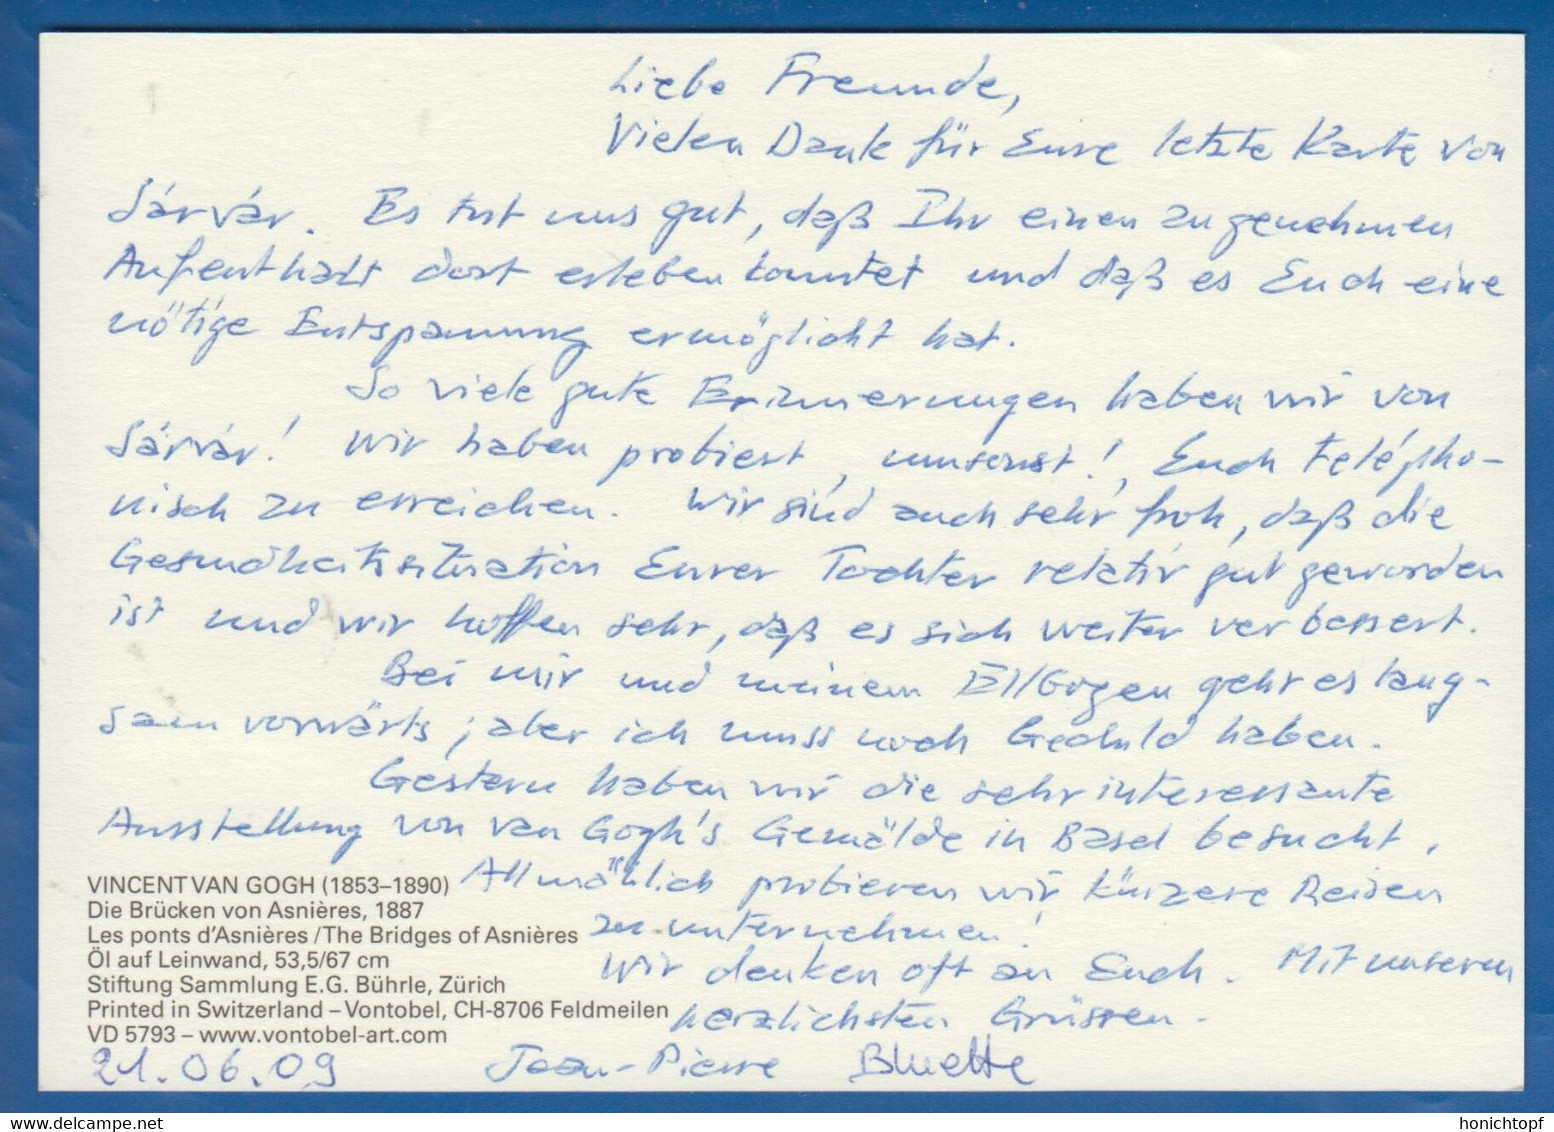 Liebe Freunde,
Vielen Dank für Eure letzte Karte von
Sárvár. Es tut uns gut, daß Ihr einen angenehmen
Aufenthalt dort erleben konntet und daß es Euch eine
nötige Entspannung ermöglicht hat.
So viele gute Erinnerungen haben wir von
Sárvár! Wir haben probiert, umsonst!, Euch telépho-
nisch zu erreichen. Wir sind auch sehr froh, daß die
Gesundheitssituation Eurer Tochter relativ gut geworden
ist und wir hoffen sehr, daß es sich weiter verbessert.
Bei mir und meinem geht es lang-
sam vorwärts; aber ich muss noch Geduld haben.
Gestern haben wir die sehr interessante
Ausstellung von van Gogh's Gemälde in Basel besucht.
Allmählich probieren wir kürzere Reisen
zu unternehmen!
Wir denken oft an Euch. Mit unseren
herzlichsten Grüssen.
Jean-Pierre Bluette
VINCENT VAN GOGH (1853–1890)
Die Brücken von Asnières, 1887
Les ponts d'Asnières / The Bridges of Asnières
Öl auf Leinwand, 53,5/67 cm
Stiftung Sammlung E.G. Bührle, Zürich
Printed in Switzerland – Vontobel, CH-8706 Feldmeilen
VD 5793 – www.vontobel-art.com
21.06.09
delcampe.net
honichtopf